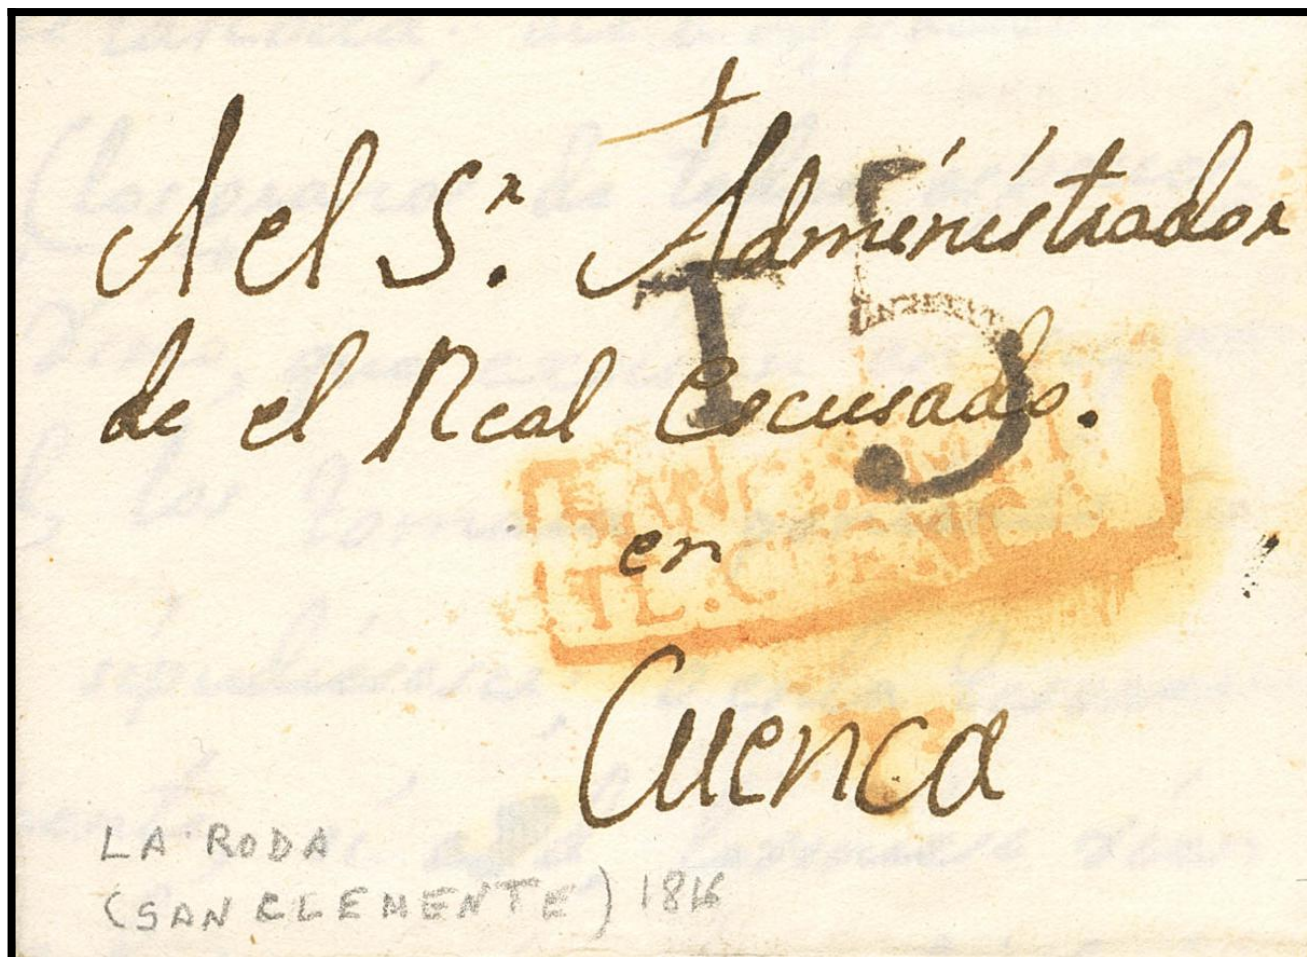 A el S.r Administrador
de el Real Escusado.
15
SAN CLEMEN
TE.CUENCA
en
Cuenca
LA RODA
(SAN CLEMENTE) 1816